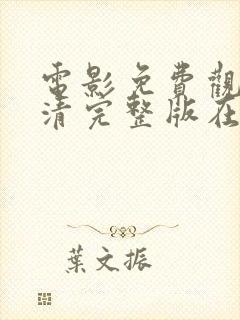 電影免費觀
清完整版在
葉文振